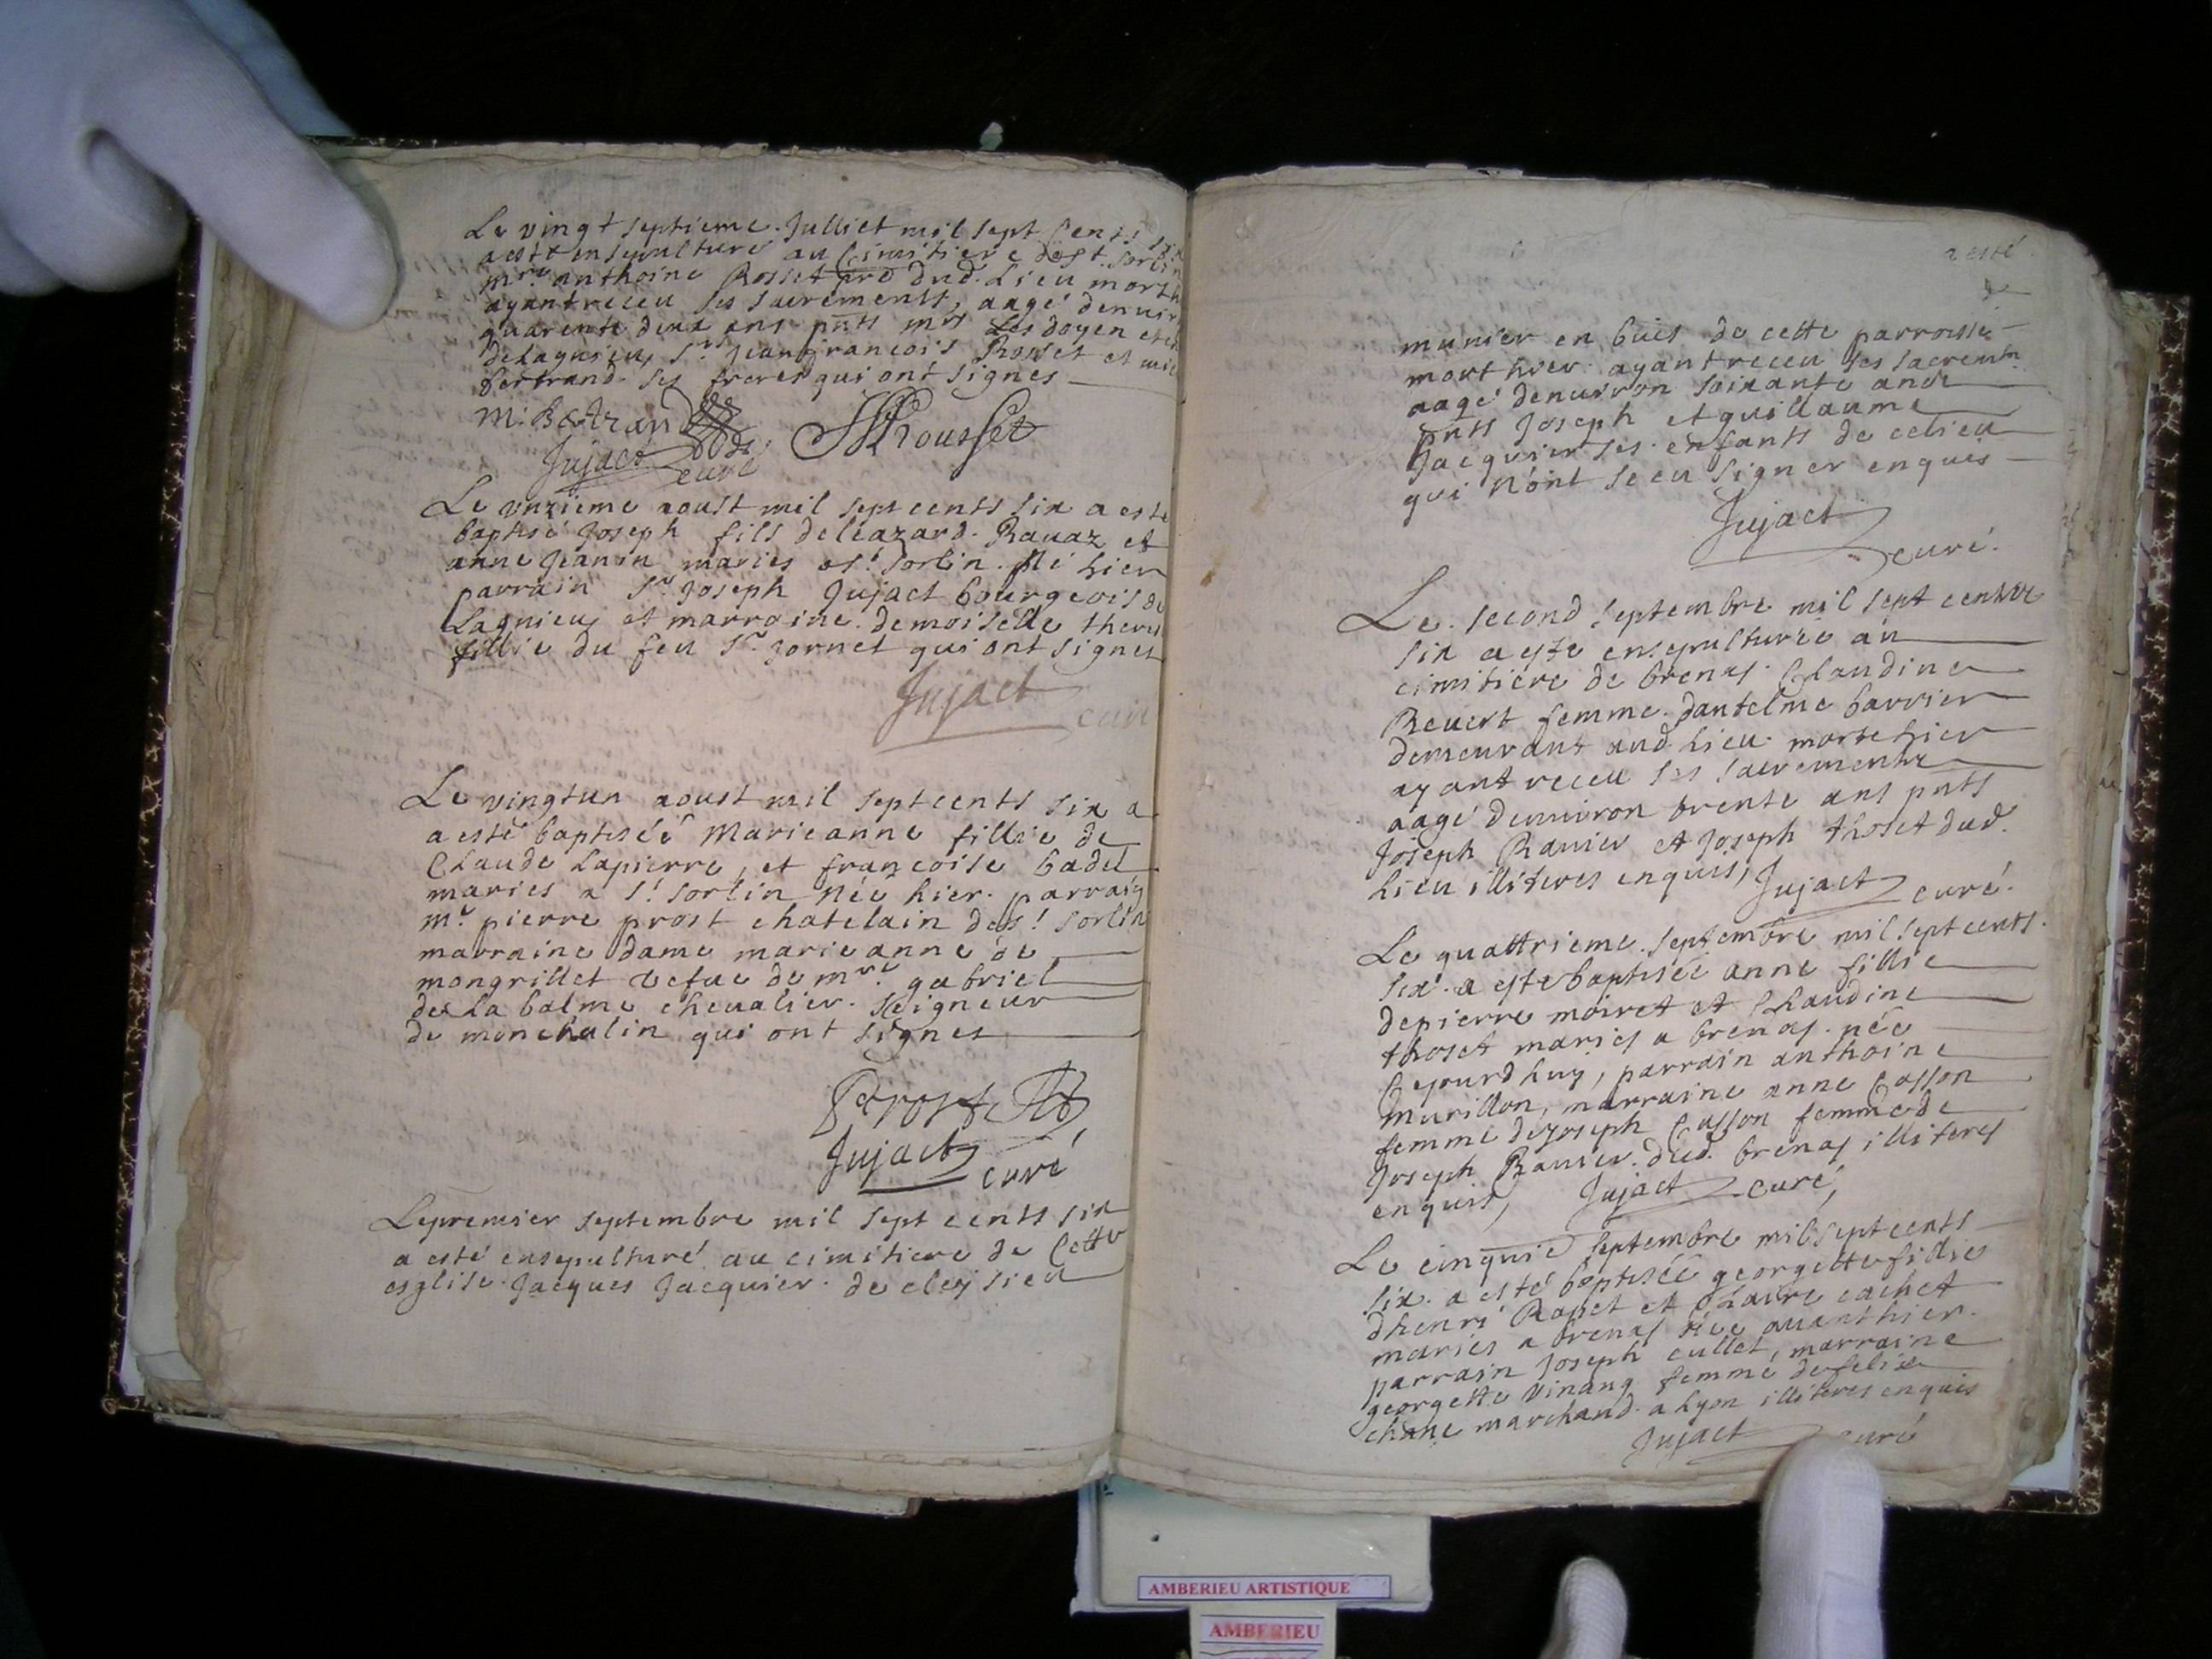 Le vingt septieme Julliet mil sept Cents six
a esté ensepulturé au Cimitiere de st sorlin
mre anthoine Rosset pre dud. Lieu mort
ayant receu ses sacrements, aagé denvir
quarente deux ans pnts mrs Les doyen et
de Lagnieu, sr Jean francois Rosset et
bertrand ses freres qui ont signes
M. Bertrand Rousset
Jujact curé
Le unzieme aoust mil sept cents six a esté
baptisé Joseph fils de leazard Ravaz et
anne Jeanin maries a st sorlin. né hier
parrain sr Joseph Jujact bourgeois de
Lagnieu, et marraine demoiselle
fillie du feu sr Jornet qui ont signes
Jujact curé
Le vingt un aoust mil sept cents six a
a esté baptisée Marie anne fillie de
Claude Lapierre, et francoise badel
maries a st sorlin née hier. parrain
mr pierre prost chatelain de st sorlin
marraine dame marie anne de
mongrillet vefue de mre gabriel
de La balme chevalier. seigneur
de monchalin qui ont signes
Prost
Jujact curé
Le premier septembre mil sept cents six
a esté ensepulturé au cimitiere de Cette
esglise Jacques Jacquier de cleysieu
a esté
munier en buis de cette parroisse
mort hier ayant receu ses sacremts
aagé denviron soixante ans
pnts Joseph et guillaume
Jacquier ses enfants de celieu
qui n'ont sceu signer enquis
Jujact
curé.
Le second septembre mil sept cents
six a esté ensepulturée au
cimitiere de brenas Claudine
Revert femme dantelme barrier
demeurant aud. Lieu morte hier
ayant receu ses sacrements
aagé denviron trente ans pnts
Joseph Ravier et Joseph thoset dud.
Lieu illiteres enquis, Jujact curé.
Le quattrieme septembre mil sept cents
six a esté baptisée anne fillie
de pierre moiret et Claudine
thoset maries a brenas. née
Cejourdhuy, parrain anthoine
murillon, marraine anne Casson
femme de Joseph Casson femme de
Joseph Ravier dud. brenas illiteres
enquis, Jujact curé,
Le cinquie septembre mil sept cents
six a esté baptisée georgette fillie
dhenri Rapet et Claire cachet
maries a brenas née avant hier.
parrain Joseph cullet, marraine
georgette vinang femme de felix
chane marchand a Lyon illiteres enquis
Jujact curé
AMBERIEU ARTISTIQUE
AMBERIEU